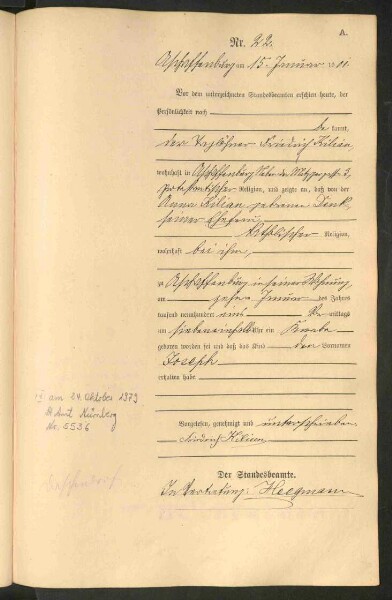 A.
Nr. 22.
Aschaffenburg am 15. Januar 1901
Vor dem unterzeichneten Standesbeamten erschien heute, der
Persönlichkeit nach
be kannt,
der Friedrich Kilian,
wohnhaft in Aschaffenburg,
protestantischer Religion, und zeigte an, daß von der
Anna Kilian, geborene
seiner Ehefrau
katholischer Religion,
wohnhaft bei ihm,
zu Aschaffenburg in seiner Wohnung,
am zehn Januar des Jahres
tausend neunhundert eins Vormittags
um Uhr ein Knabe
geboren worden sei und daß das Kind den Vornamen
Joseph
erhalten habe
Vorgelesen, genehmigt und unterschrieben
Friedrich Kilian
Der Standesbeamte.
In Vertretung: Heegmann
am 24. Oktober 1973
St. Amt Nürnberg
Nr. 5536